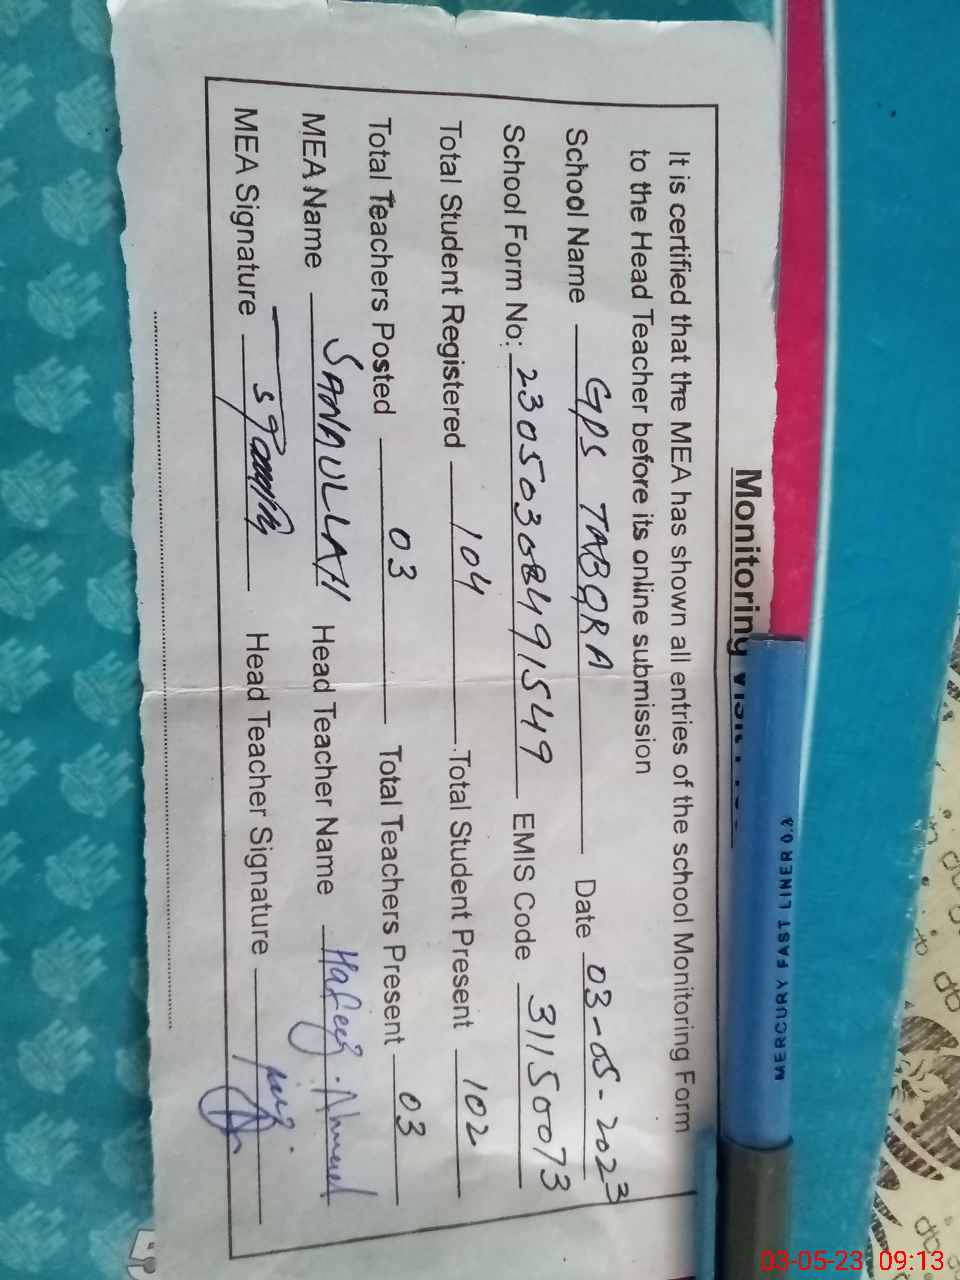 Monitoring
It is certified that the MEA has shown all entries of the school Monitoring Form
to the Head Teacher before its online submission
School Name GPS TABQRA Date 03-05-2023
School Form No: 2305030849 1549 EMIS Code 31150073
Total Student Registered 104 Total Student Present 102
Total Teachers Posted 03 Total Teachers Present 03
MEA Name SANAULLAH Head Teacher Name Hafeez Ahmed
MEA Signature Head Teacher Signature
MERCURY FAST LINER 0.8
03-05-23 09:13